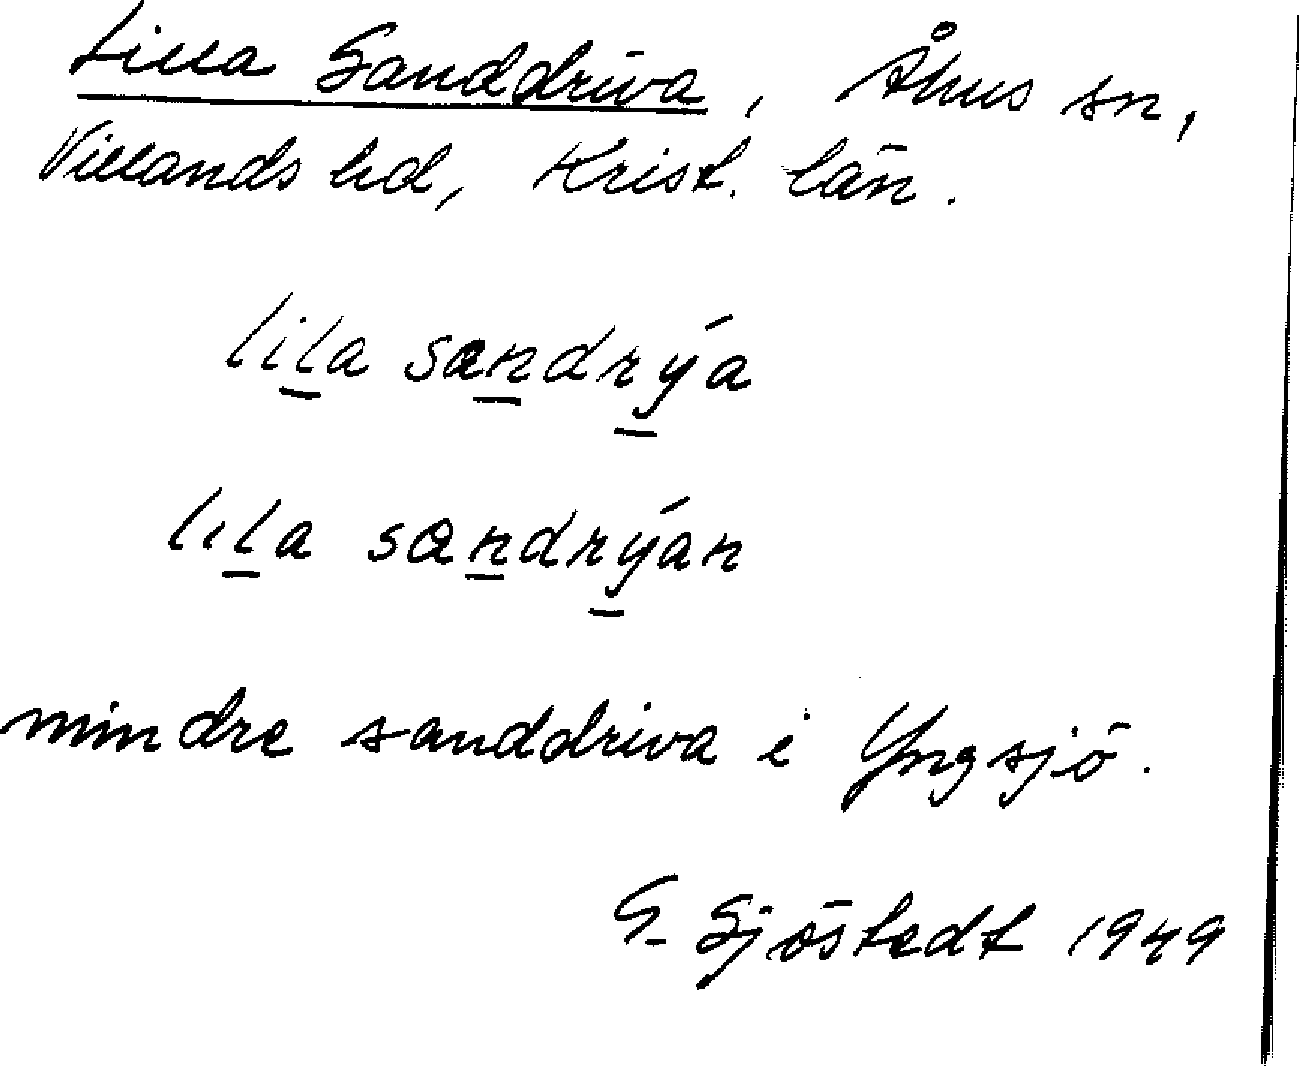 Lilla Sanddriva, Åhus sn,
Villands hd, Krist. län.
lila sandrýa
lıla sandrýan
mindre sanddriva i Yngsjö.
G. Sjöstedt 1949